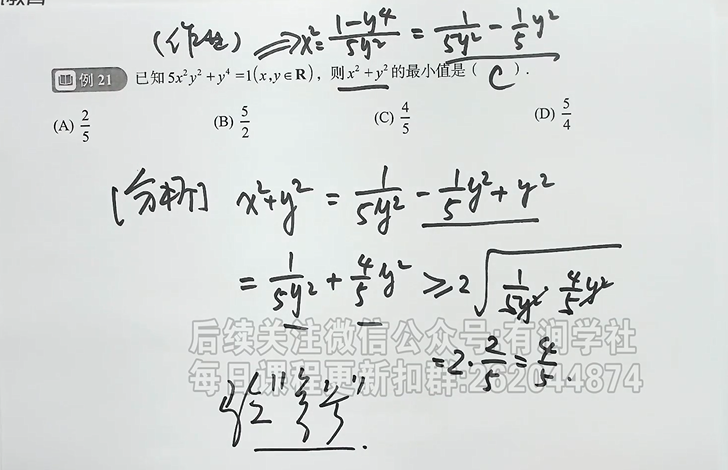 (作业) ⟹ x²= (1-y⁴)/(5y²) = 1/(5y²) - (1/5)y²
例 21 已知 5x²y²+y⁴=1(x,y∈R), 则 x²+y² 的最小值是( C ).
(A) 2/5 (B) 5/2 (C) 4/5 (D) 5/4
[分析] x²+y² = 1/(5y²) - (1/5)y² + y²
= 1/(5y²) + (4/5)y² ≥ 2√(1/(5y²) · (4/5)y²)
后续关注微信公众号:有润学社
= 2·2/5 = 4/5.
每日课程更新扣群:262044874